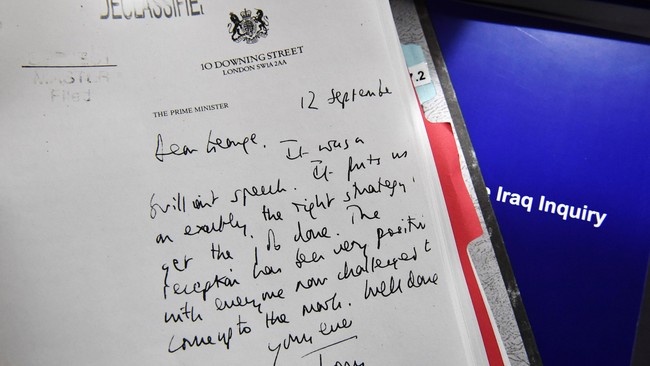 DECLASSIFIED
MASTER
Filed
10 DOWNING STREET
LONDON SW1A 2AA
THE PRIME MINISTER
12 September
Dear George. It was a
brilliant speech. It puts us
on exactly the right strategy,
get the job done. The
reception has been very positive
with everyone now challenged to
come up to the mark. Well done
Yours ever
Tony
7.2
Iraq Inquiry